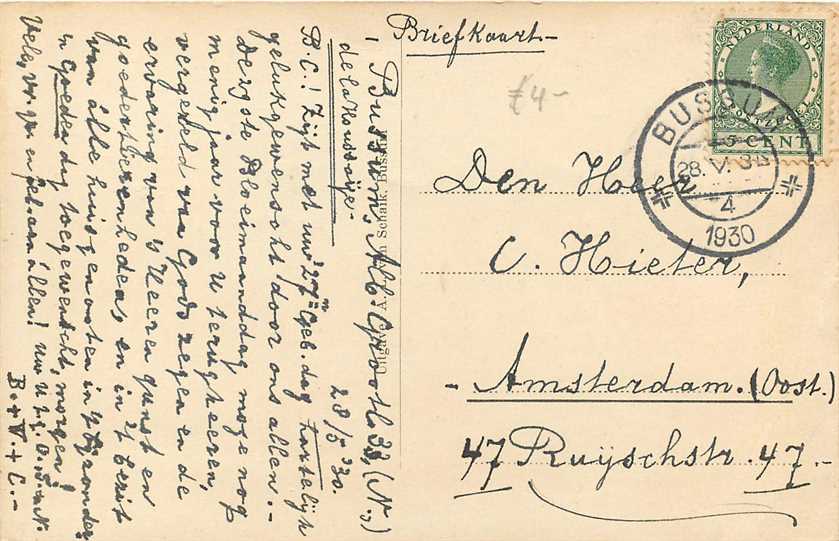 Briefkaart
NEDERLAND
5 CENT
BUSSUM
28. V.
4
1930
£4-
Den Heer
C. Hieter,
- Amsterdam. (Oost.)
47 Ruyschstr. 47.-
Uitgave A. van Schaik, Bussum
- Bussum, Alb. Grootl. 33, (N.,)
de la Roussaye- 28/5 '30.
B.C.! Zijt met uw 27ⁿ geb. dag hartelijk
gelukgewenscht door ons allen.-
Dergste Bloeimaanddag moge nog
menig jaar voor U terugkeeren,
vergezeld van Gods zegen en de
ervaring van 's Heeren gunst en
goedertierenheden, en in 't bezit
van álle huisgenooten in 't bijzonder
'n goeden dag toegewenscht, morgen!
Vele, vr. gr. en beb. aan állen! Uw
B. + V. + C.-